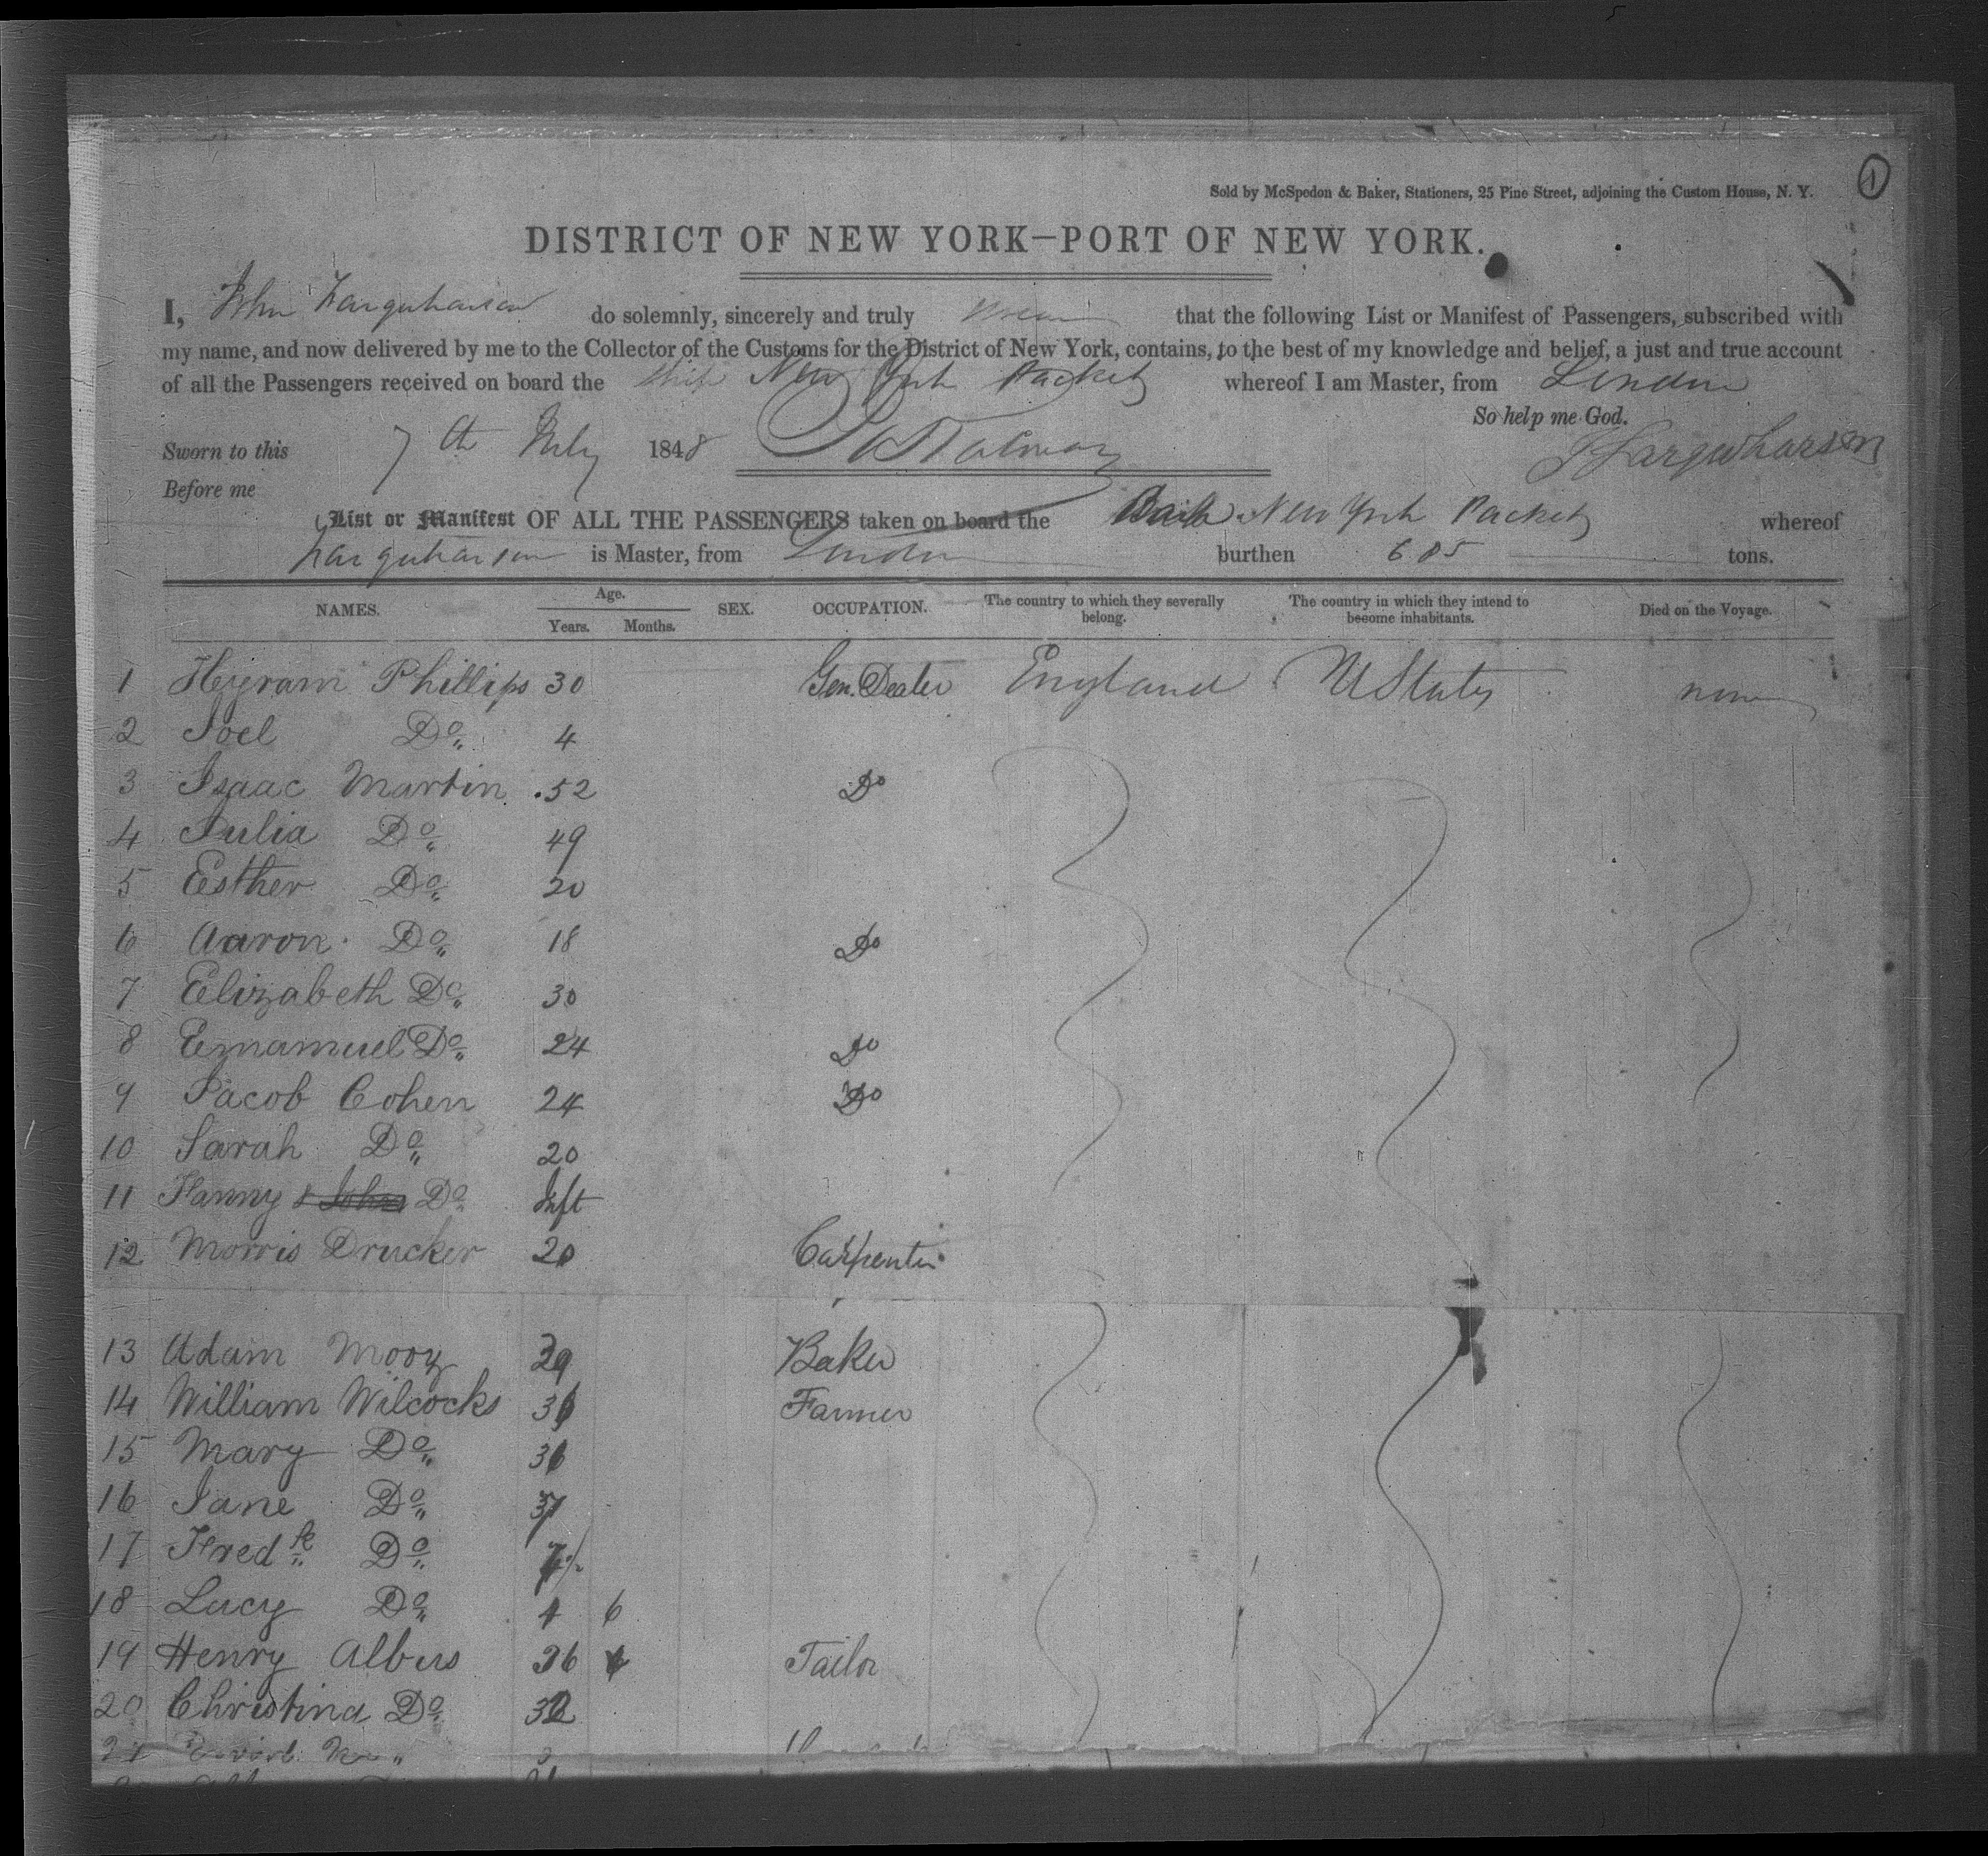 1
Sold by McSpedon & Baker, Stationers, 25 Pine Street, adjoining the Custom House, N. Y.
DISTRICT OF NEW YORK—PORT OF NEW YORK.
I, John Farquharson do solemnly, sincerely and truly swear that the following List or Manifest of Passengers, subscribed with
my name, and now delivered by me to the Collector of the Customs for the District of New York, contains, to the best of my knowledge and belief, a just and true account
of all the Passengers received on board the Ship New York Packet whereof I am Master, from London
So help me God.
Sworn to this 7th July 1848
J Farquharson
Before me
List or Manifest OF ALL THE PASSENGERS taken on board the Bark New York Packet whereof
Farquharson is Master, from London burthen 685 tons.
NAMES. Age. Years. Months. SEX. OCCUPATION. The country to which they severally belong. The country in which they intend to become inhabitants. Died on the Voyage.
1 Hyram Phillips 30 Gen. Dealer England U States none
2 Joel Do 4
3 Isaac Martin 52 Do
4 Julia Do 49
5 Esther Do 20
6 Aaron Do 18 Do
7 Elizabeth Do 30
8 Emamuel Do 24 Do
9 Jacob Cohen 24 Do
10 Sarah Do 20
11 Fanny & John Do Inft
12 Morris Drucker 20 Carpenter
13 Adam Mooy 29 Baker
14 William Wilcocks 36 Farmer
15 Mary Do 36
16 Jane Do
17 Fredk Do
18 Lucy Do 4 6
19 Henry Albus 36 Tailor
20 Christina Do 32
21